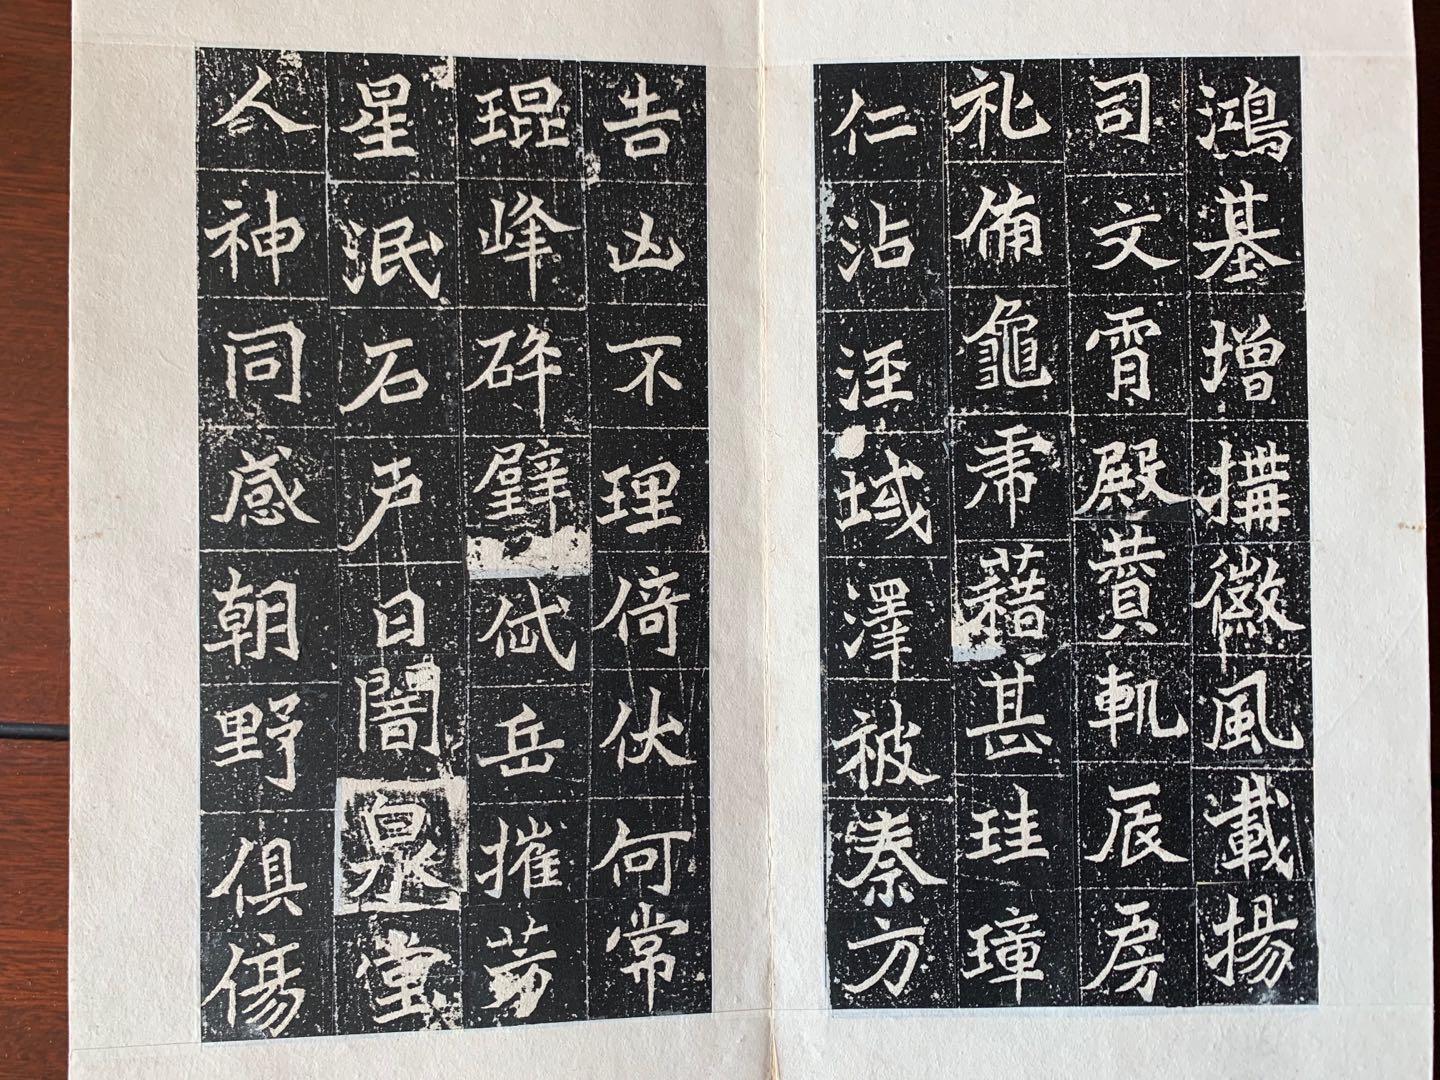 鴻基增搆徽風載揚
司文霄殿贊軌辰房
礼俻龜虎藉甚珪璋
仁沾涇域澤被秦方
告凶不理倚伏何常
琨峰碎璧岱岳摧芳
星泯石戶日闇泉堂
人神同感朝野俱傷